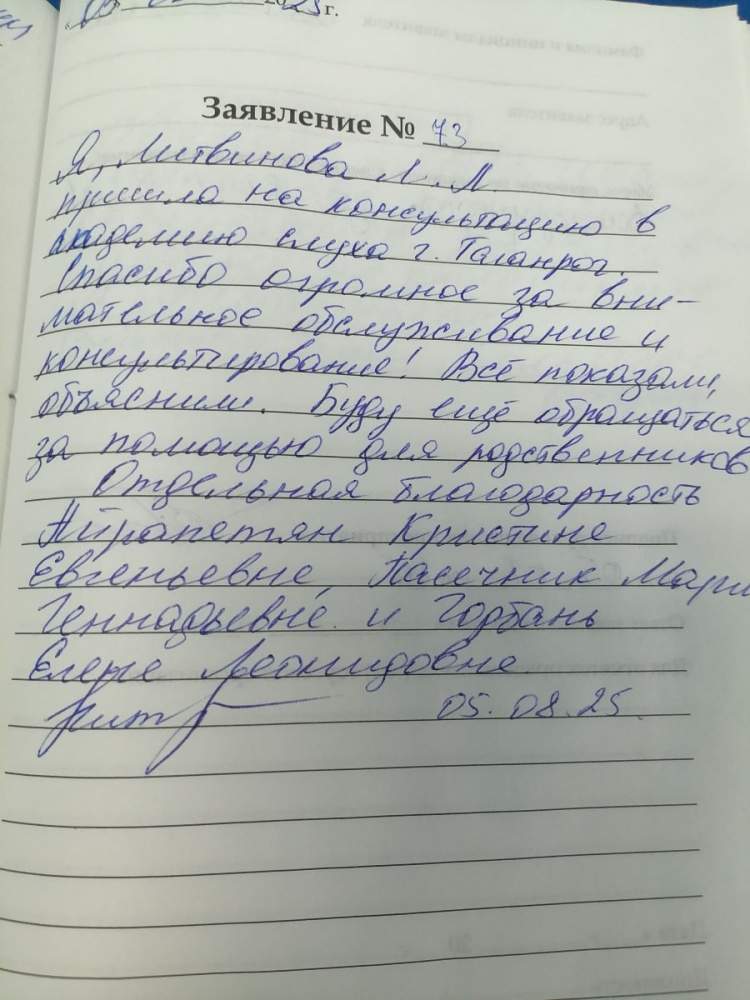 2025 г.
Заявление № 73
Я, Литвинова Л.М.
пришла на консультацию в
академию слуха г. Таганрог.
Спасибо огромное за вни-
мательное обслуживание и
консультирование! Всё показали,
объяснили. Буду ещё обращаться
за помощью для родственников
Отдельная благодарность
Айрапетян Кристине
Евгеньевне, Пасечник Мари
Геннадьевне и Горбань
Елене Леонидовне.
05.08.25